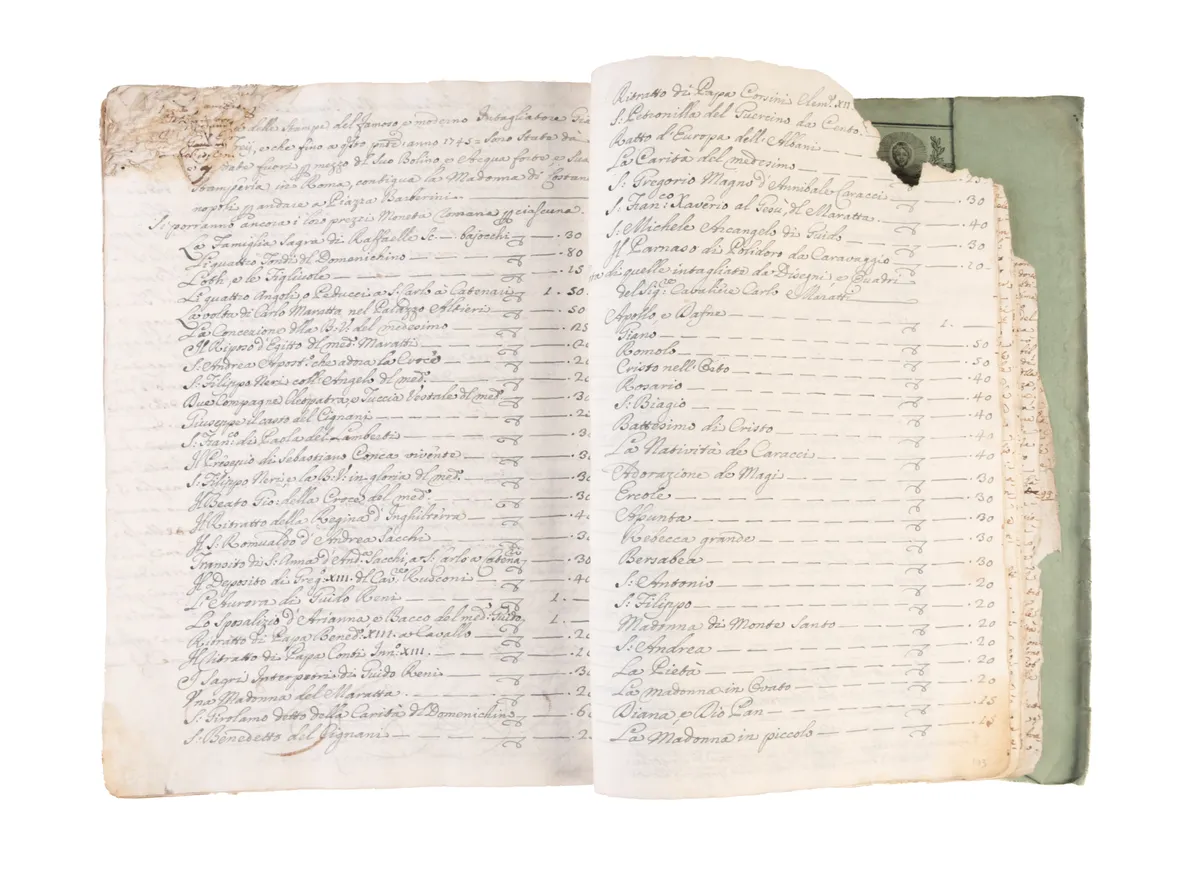 delle Stampe del famoso, e moderno Intagliatore Gia
Frey, e che fino a qsto pnte anno 1745 = sono State da
date fuori p mezzo di Suo Bolino, e Acqua forte, e
Stamperia in Roma, contigua la Madonna di Costan
nopoli p andare a Piazza Barberini.
Si porranno ancora i loro prezzi Moneta Romana p ciascuna.
La Famiglia Sagra di Raffaelle Sc.— bajocchi — .30
Li quattro Tondi di Domenichino — .80
Loth, e le Figliuole — .15
Li quattro Angoli, o Peducci a S. Carlo à Catenari — 1.50
La volta di Carlo Maratta nel Palazzo Altieri — .50
La Concezione dlla B. V. del medesimo — .25
Il Riposo d'Egitto del med. Maratti —
S. Andrea Apost.o che adora la Croce — .2
S. Filippo Neri coll'Angelo dl med.o — .2
Due Compagne Cleopatra, e Tuccia Vestale dl med.o — .3
Giuseppe il casto del Cignani — .2
S. Fran.co di Paola del Lamberti — .3
Il Presepio di Sebastiano Conca vivente — .3
S. Filippo Neri, e la B. V. in gloria dl med.o — .3
Il Beato Gio: della Croce del med.o — .3
Il Ritratto della Regina d'Inghilterra — .4
Il S. Romualdo d'Andrea Sacche — .3
Transito di S. Anna d'And.a Sacchi, a S. Carlo a Catena — .30
Il Deposito di Greg.o XIII. di Cav.re Rusconi — .40
L'Aurora di Guido Reni — 1.—
Lo Sposalizio d'Arianna, e Bacco del med.o Guido — 1.—
Ritratto di Papa Bened.o XIII. a Cavallo — .20
Il Ritratto di Papa Conti Inn.o XIII. —
I Sagri Interpetri di Guido Reni — .30
Vna Madonna del Maratta. — .2
S. Girolamo detto della Carità di Domenichin — .6
S. Benedetto del Cignani — .2
Ritratto di Papa Corsini Clem.e XII
S. Petronilla del Guercino da Cento
Ratto d'Europa dell'Albani —
La Carità del medesimo —
S. Gregorio Magno d'Annibale Caracci — .30
S. Fran.co Xaverio al Gesu, dl Maratta — .40
S. Michele Arcangelo di Guido — .30
Il Parnaso di Polidoro da Caravaggio — .20
di quelle intagliate da Disegni, e Quadri
del Sig.r Cavaliere Carlo Maratti
Apollo e Dafne — 1.—
Giano — .50
Romolo — .50
Cristo nell'Orto — .40
Rosario — .40
S. Biagio — .40
Battesimo di Cristo — .40
La Natività de Caracci — .40
Adorazione de Magi — .30
Ercole — .30
Assunta — .30
Rebecca grande — .30
Bersabea — .30
S. Antonio — .20
S. Filippo — .20
Madonna di Monte Santo — .20
S. Andrea — .20
La Pietà — .20
La Madonna in Ovato — .20
Diana, e Dio Pan — .15
La Madonna in piccolo —